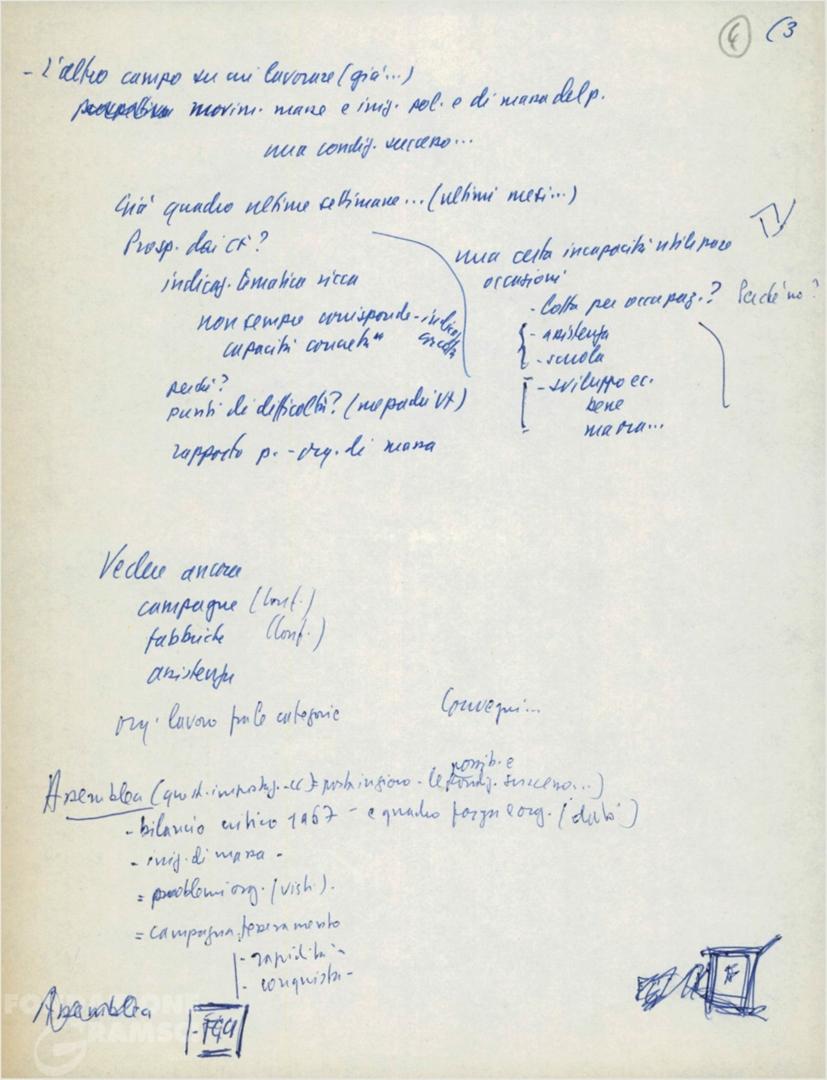 ④ (3
- L'altro campo su cui lavorare (già...)
movim. massa e iniz. pol. e di massa del p.
una condiz. successo...
Già quadro ultime settimane... (ultimi mesi...)
Prosp. dai CF?
indicaz. tematica ricca
non sempre corrisponde -
capacità concreta
perché?
punti di difficoltà? (
rapporto p. - org. di massa
una certa incapacità utilizzare
occasioni
- lotta per occupaz.? Perché no?
- assistenza
- scuola
- sviluppo ec.
bene
ma ora...
Vedere ancora
campagne (Conf.)
fabbriche (Conf.)
assistenza
org. lavoro fra le categorie
Convegni...
possib. e
Assemblea (quest. impostaz. condiz. successo...)
- bilancio critico 1967 - e quadro forze e org. (dati)
- iniz. di massa -
= problemi org. (visti).
= campagna tesseramento
- rapidità -
- conquista -
Assemblea
- FGCI
FONDAZIONE
GRAMSCI